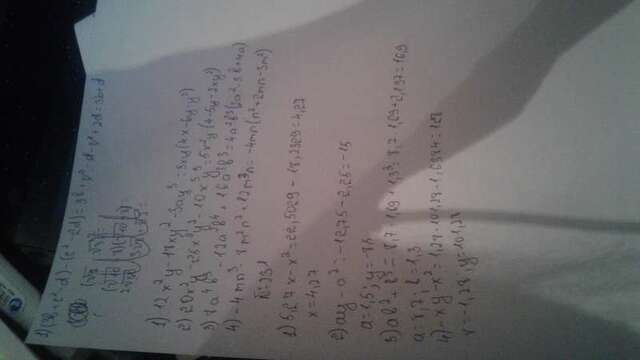 1)(3b+c²-d)-(c²-2d)=3b+c²-d-c²+2d=3b+d
1) 12x²y-18xy²-3xy³=3xy(4x-6y-y²)
2) 20x²y-25x²y²-10x³y³=5x²y(4-5y-2xy²)
3) 8a⁴b³-12a²b⁴+16a³b³=4a²b³(2a²-3b+4a)
4) -4mn³-8m²n²+12m³n=-4mn(n²+2mn-3m²)
1) 5,27x-x²=22,5029-18,2329=4,27
x=4,27
2) ay-a²=-12,75-2,25=-15
a=1,5; y=-8,5
3) ab²+b³=8,7·1,69+1,3³=8,7·1,69+2,197=16,9
a=8,7; b=1,3
4) -xy-x²=1,28·101,28-1,6384=128
x=-1,28, y=101,28